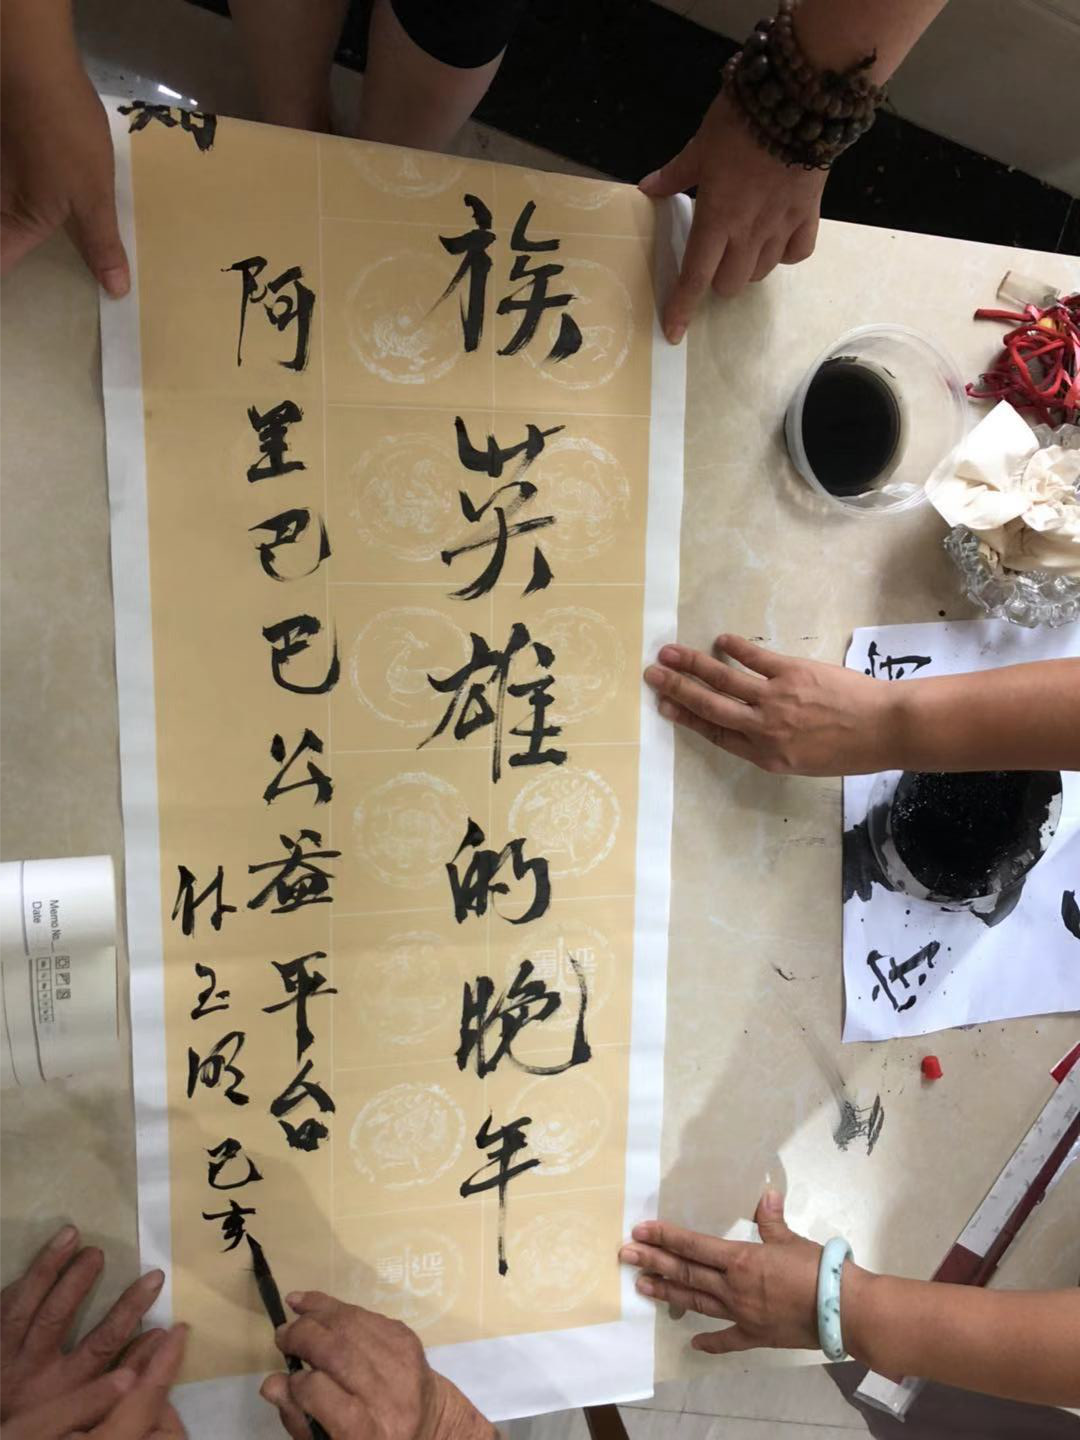 族英雄的晚年
阿里巴巴公益平台
林玉明 己亥
Memo No.
Date